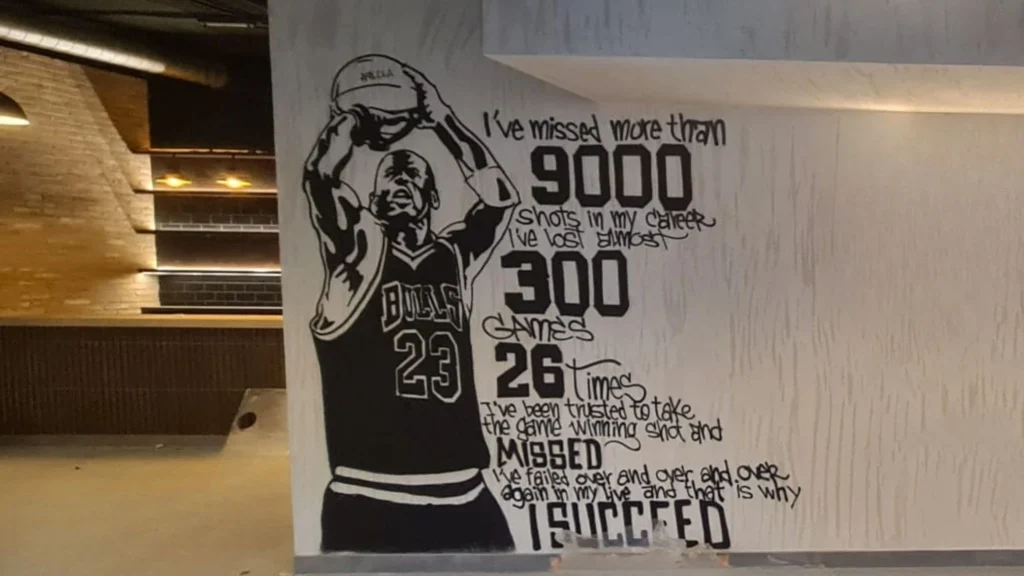 I've missed more than
9000
shots in my career
I've lost almost
300
GAMES
26 Times
I've been trusted to take
the game winning shot and
MISSED
I've failed over and over and over
again in my live and that is why
I SUCCEED
BULLS
23